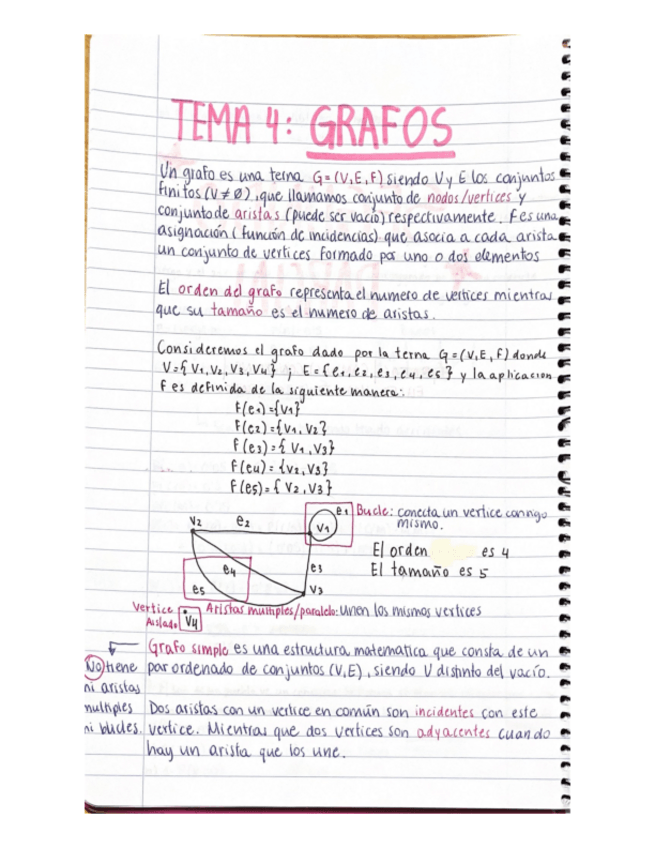 TEMA 4: GRAFOS
Un grafo es una terna G=(V,E,F) siendo V y E los conjuntos
finitos (V≠∅), que llamamos conjunto de nodos/vertices y
conjunto de aristas (puede ser vacio) respectivamente. F es una
asignación (función de incidencias) que asocia a cada arista
un conjunto de vertices formado por uno o dos elementos
El orden del grafo representa el numero de vertices mientras
que su tamaño es el numero de aristas.
Consideremos el grafo dado por la terna G=(V,E,F) donde
V={V1,V2,V3,V4} ; E={e1,e2,e3,e4,e5} y la aplicacion
F es definida de la siguiente manera:
F(e1)={V1}
F(e2)={V1,V2}
F(e3)={V1,V3}
F(e4)={V2,V3}
F(e5)={V2,V3}
V2 e2 e1 V1
Bucle: conecta un vertice consigo
mismo.
El orden es 4
El tamaño es 5
e4 e3
e5 V3
Vertice Aislado V4
Aristas multiples/paralelo: unen los mismos vertices
Grafo simple es una estructura matematica que consta de un
par ordenado de conjuntos (V,E), siendo V distinto del vacío.
No tiene
ni aristas
multiples
ni bucles.
Dos aristas con un vertice en común son incidentes con este
vertice. Mientras que dos vertices son adyacentes cuando
hay un arista que los une.